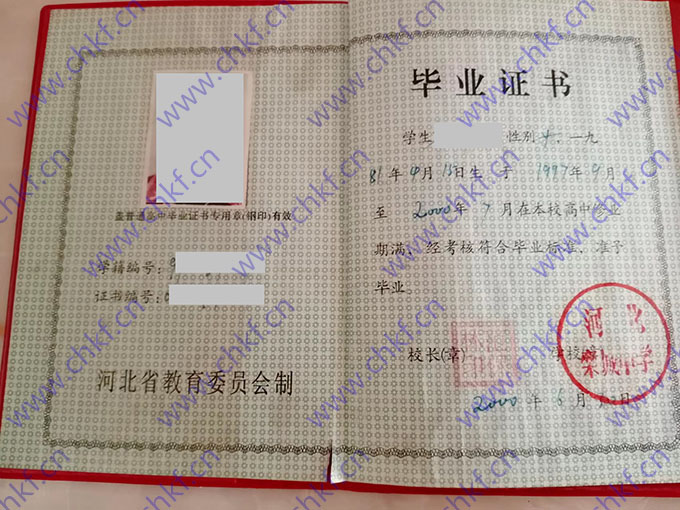 盖普通高中毕业证书专用章(钢印)有效
学籍编号:
证书编号:
河北省教育委员会制
毕业证书
学生 性别 一九
81年4月15日生 于 1997年9月
至 2000年7月在本校高中毕业
期满、经考核符合毕业标准、准予
毕业。
校长(章)
河北
栾城中学
2000年6月 日
www.chkf.cn